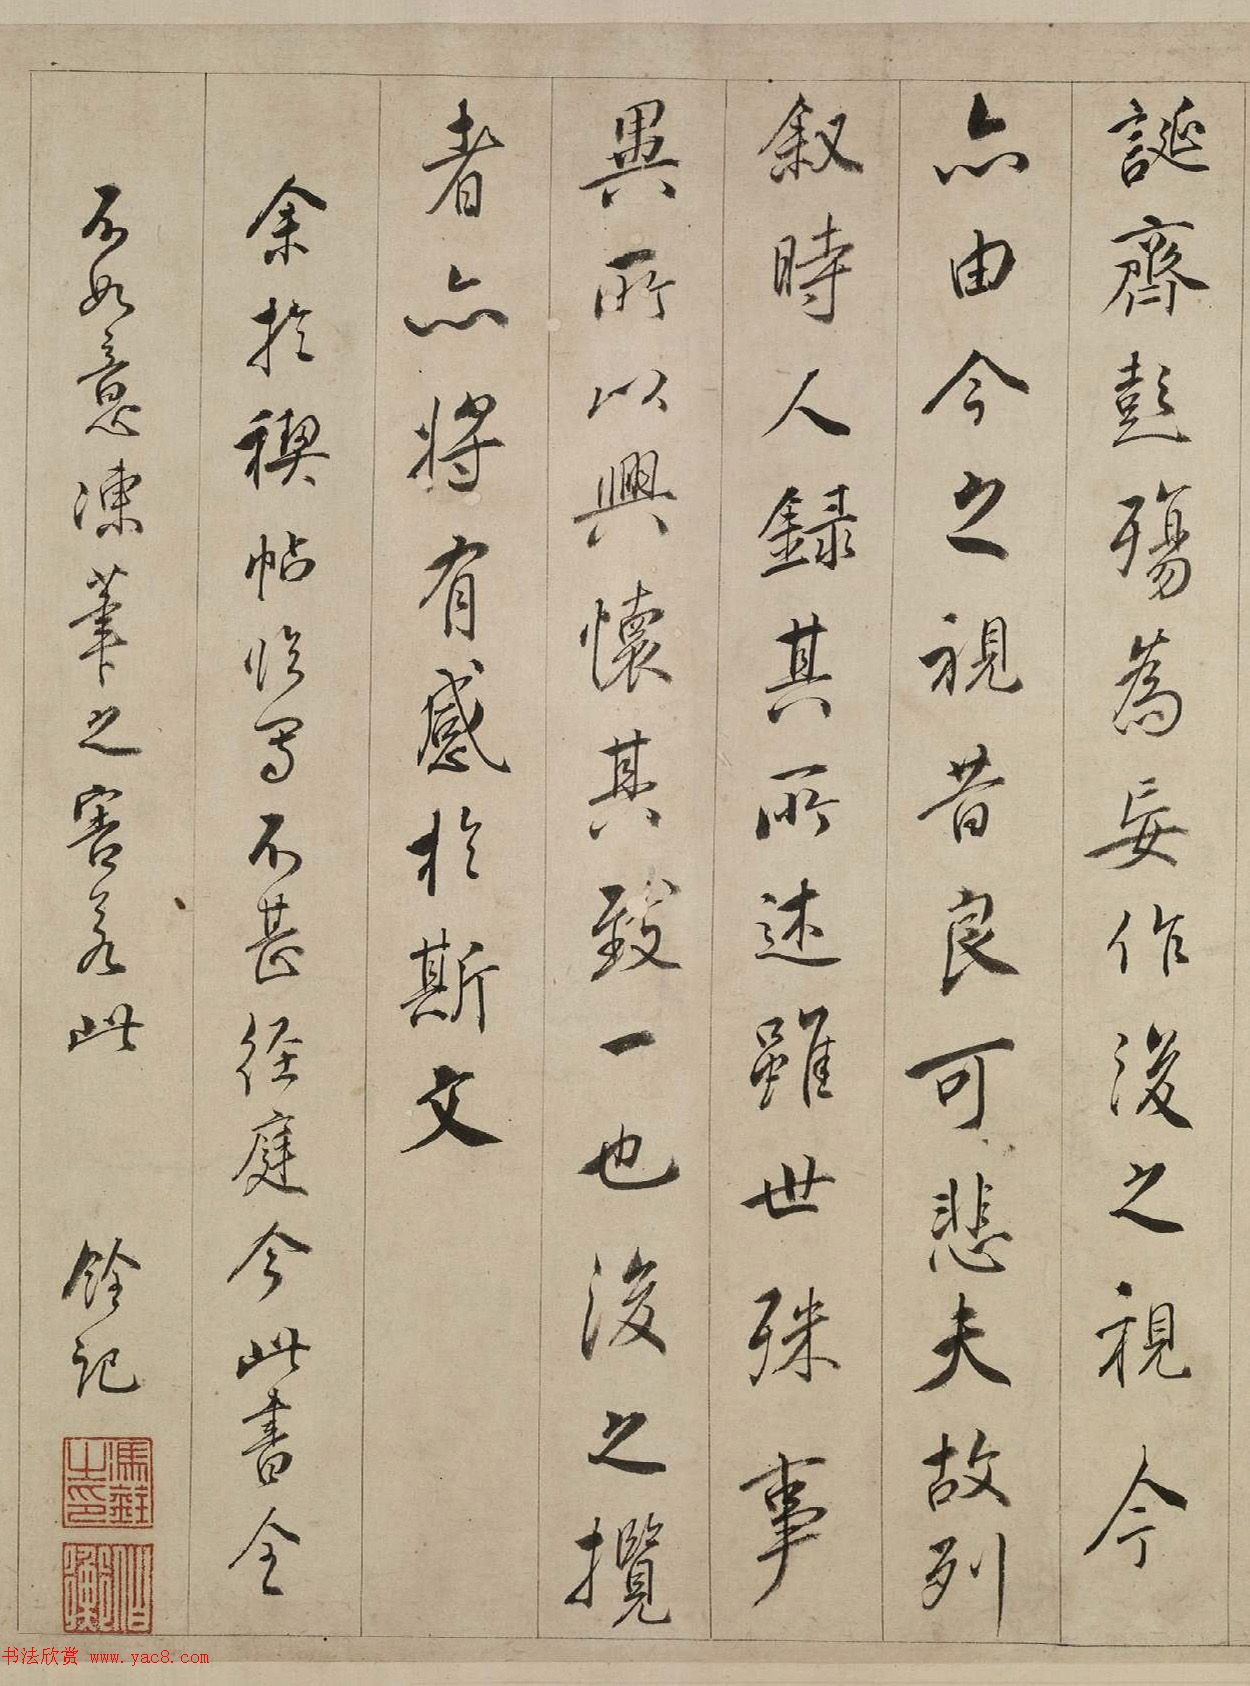 誕齊彭殤為妄作後之視今
亦由今之視昔良可悲夫故列
叙時人錄其所述雖世殊事
異所以興懷其致一也後之攬
者亦將有感於斯文
余於禊帖臨寫不甚徑庭今此書全
不如意凍筆之害若此
銓記
馮銓之印
书法欣赏 www.yac8.com